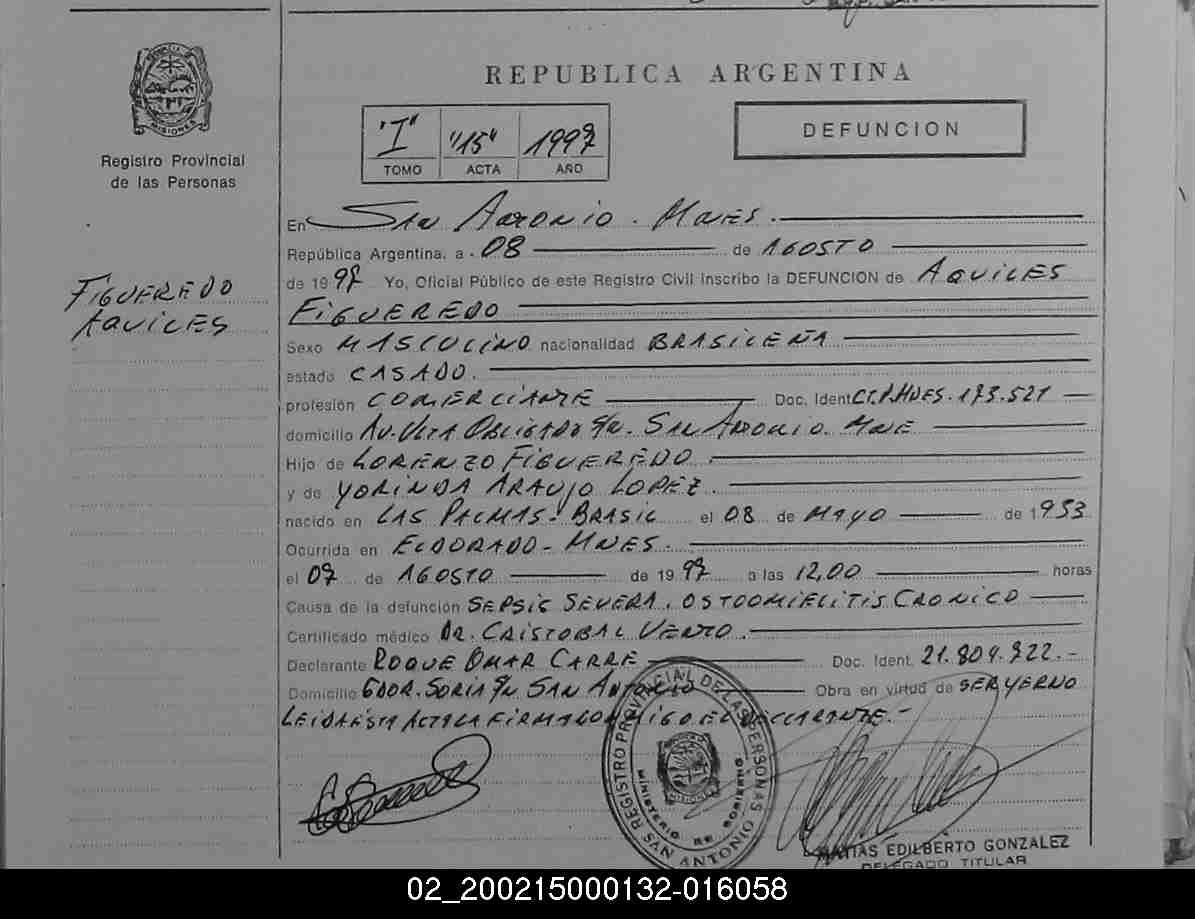 REPUBLICA ARGENTINA
MISIONES
Registro Provincial
de las Personas
"I" "15" 1997
TOMO ACTA AÑO
DEFUNCION
En San Antonio. Mnes.
República Argentina, a 08 de AGOSTO
de 1997 Yo, Oficial Público de este Registro Civil inscribo la DEFUNCION de AQUILES
FIGUEREDO
FIGUEREDO
AQUILES
Sexo MASCULINO nacionalidad BRASILEÑA
estado CASADO.
profesión COMERCIANTE Doc. Ident. CI.P.MNES. 173.521
domicilio AV. Ulta OBLIGADO S/N. SAN ANTONIO. MNE
Hijo de LORENZO FIGUEREDO.
y de YORINDA ARAUJO LOPEZ.
nacido en LAS PALMAS - BRASIL el 08 de MAYO de 1933
Ocurrida en ELDORADO - MNES.
el 07 de AGOSTO de 1997 a las 12,00 horas
Causa de la defunción SEPSIS SEVERA. OSTOOMIELITIS CRONICO
Certificado médico DR. CRISTOBAL VENTO.
Declarante ROQUE OMAR CARRE Doc. Ident. 21.804.322.-
Domicilio GDOR. SORIA S/N. SAN ANTONIO Obra en virtud de SER YERNO
LEIDA ESTA ACTA LA FIRMA CONMIGO EL DECLARANTE.-
REGISTRO PROVINCIAL DE LAS PERSONAS
MINISTERIO DE GOBIERNO
MISIONES
SAN ANTONIO
MATIAS EDILBERTO GONZALEZ
DELEGADO TITULAR
02_200215000132-016058